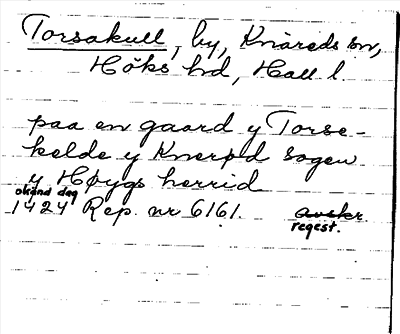 Torsakull, by, Knäreds sn,
Höks hd, Hall. l.
paa en gaard y Torse-
kelde y Knerød sogen
y Høygs herrid
okänd dag
1424 Rep. nr 6161. avskr.
regest.